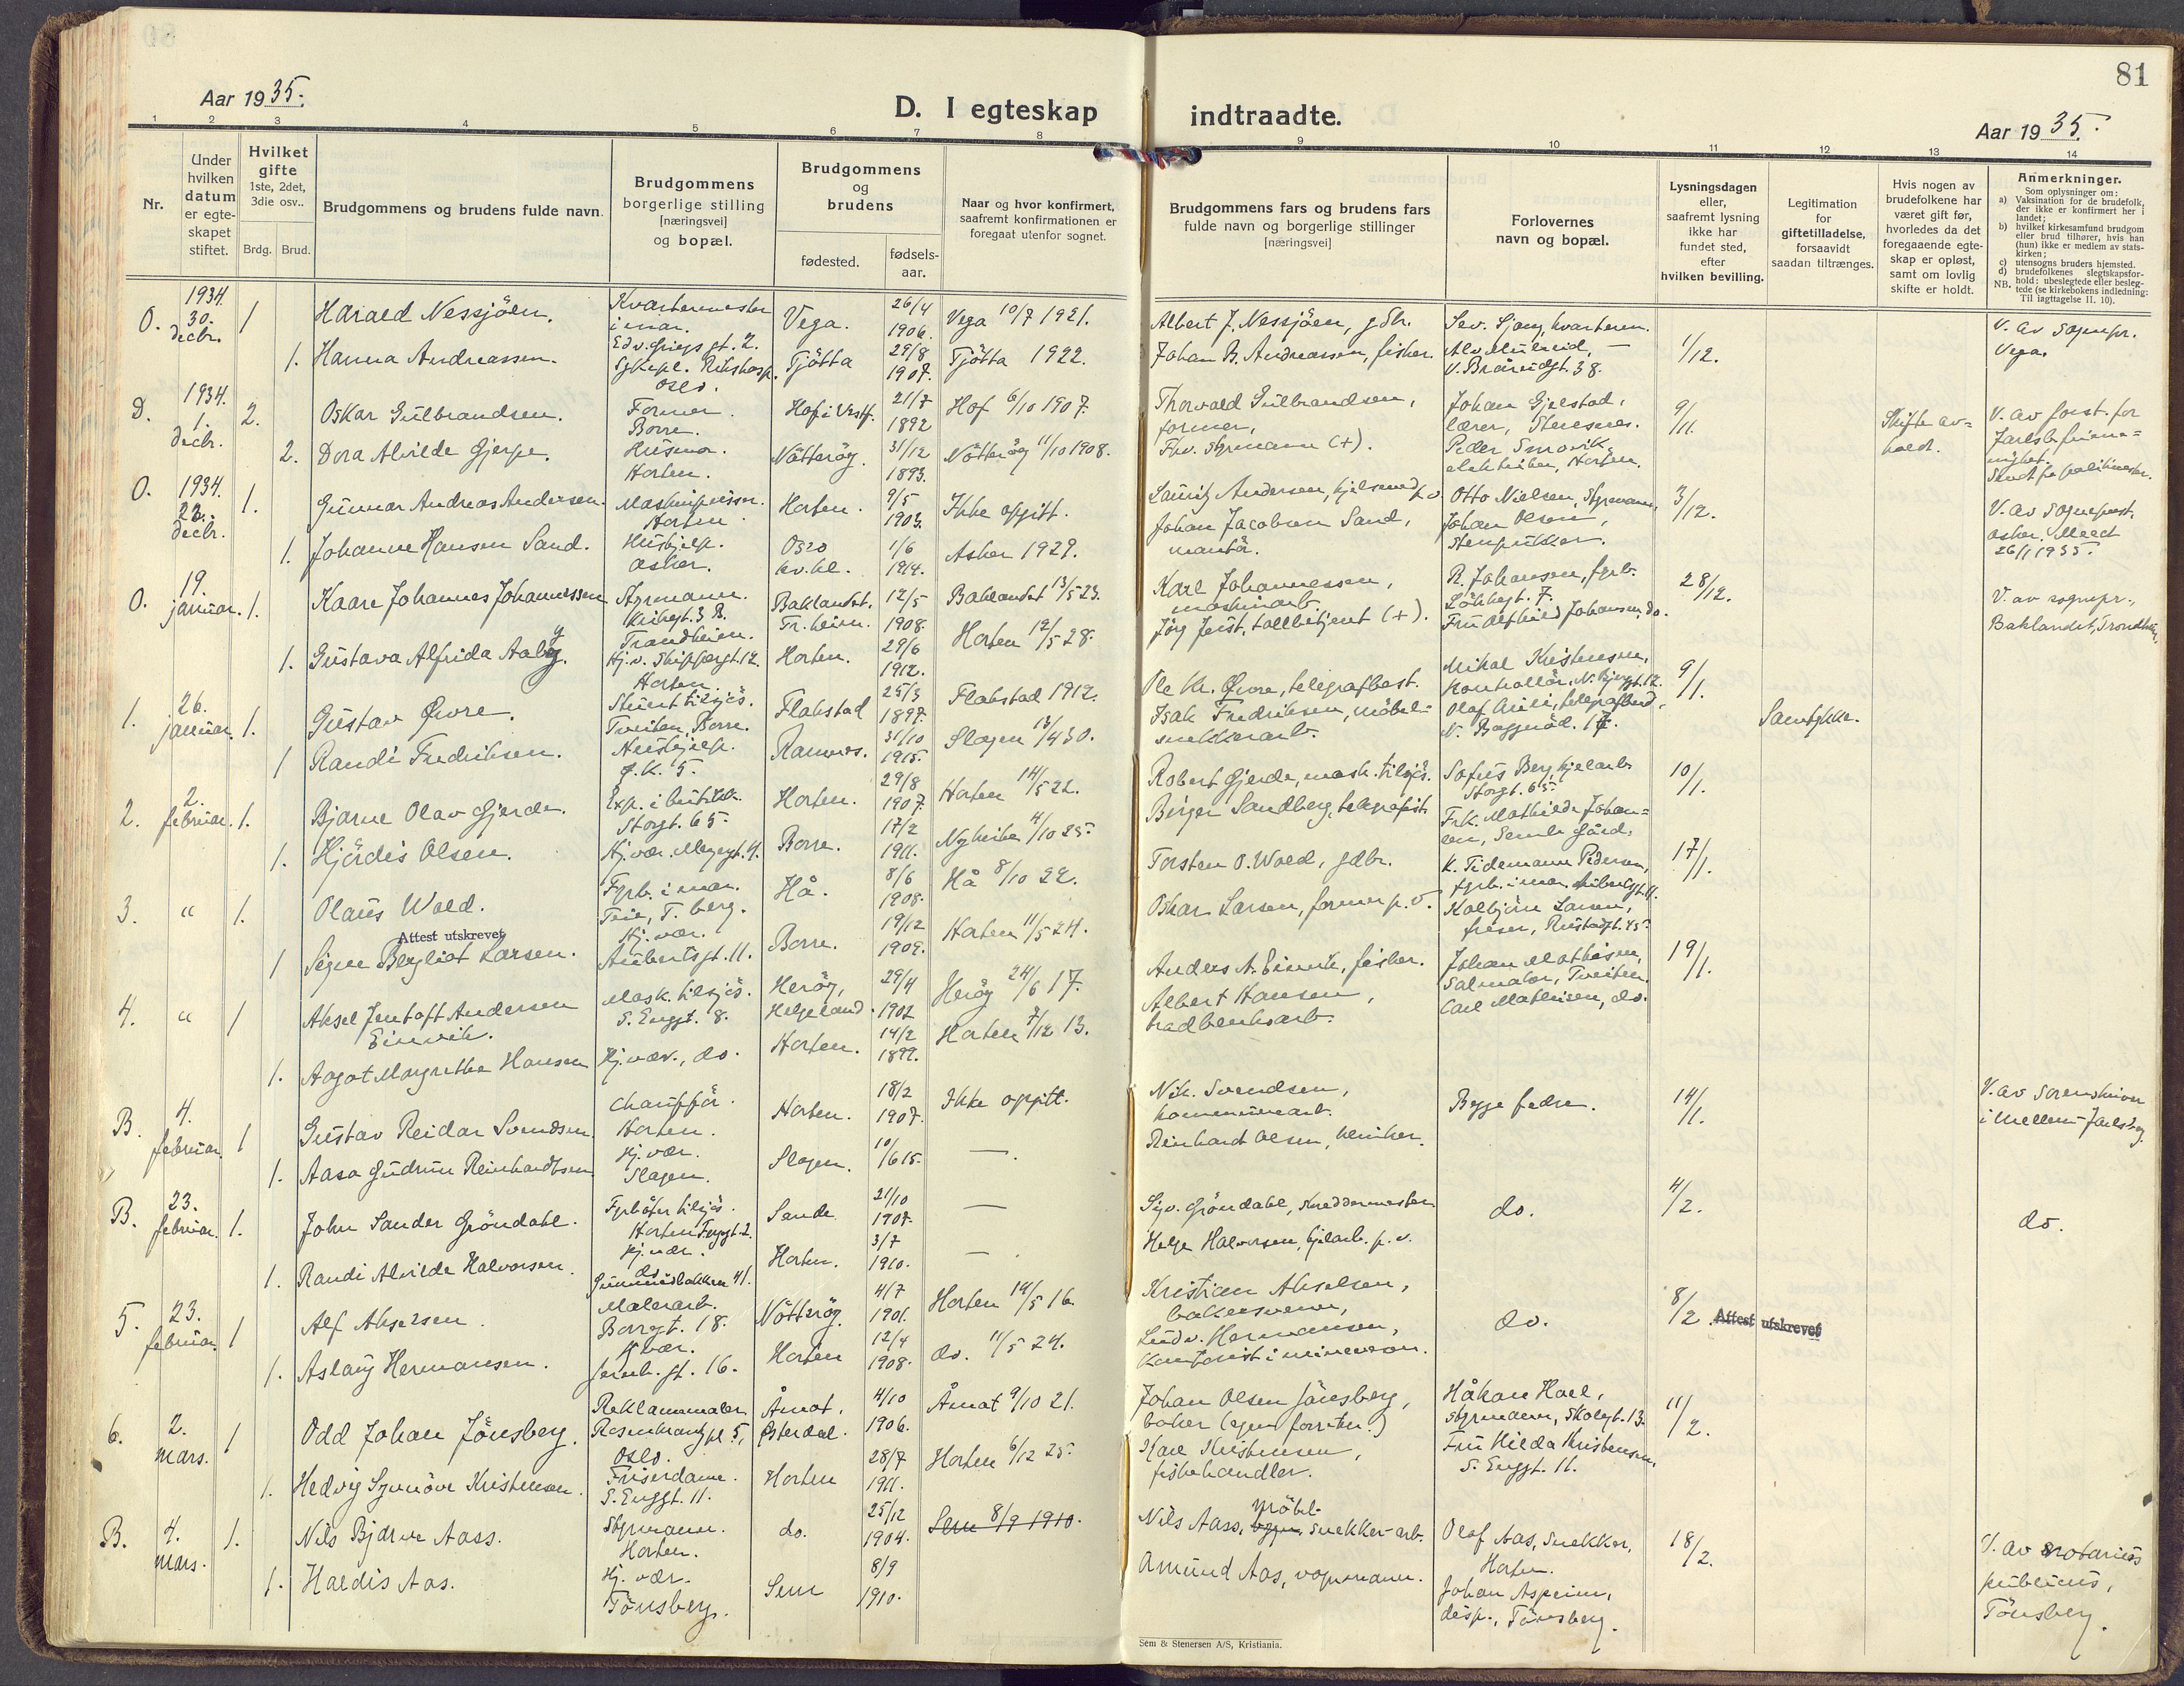 81
Aar 1935.
D. I egteskap indtraadte.
Aar 1935.
1 2 3 4 5 6 7 8 9 10 11 12 13 14
Nr.
Under hvilken datum er egte-skapet stiftet.
Hvilket gifte 1ste, 2det, 3die osv..
Brdg. Brud.
Brudgommens og brudens fulde navn.
Brudgommens borgerlige stilling [næringsvei] og bopæl.
Brudgommens og brudens
fødested.
fødsels-aar.
Naar og hvor konfirmert, saafremt konfirmationen er foregaat utenfor sognet.
Brudgommens fars og brudens fars fulde navn og borgerlige stillinger [næringsvei]
Forlovernes navn og bopæl.
Lysningsdagen eller, saafremt lysning ikke har fundet sted, efter hvilken bevilling.
Legitimation for giftetilladelse, forsaavidt saadan tiltrænges.
Hvis nogen av brudefolkene har været gift før, hvorledes da det foregaaende egte-skap er opløst, samt om lovlig skifte er holdt.
Anmerkninger.
Som oplysninger om:
a) Vaksination for de brudefolk, der ikke er konfirmert her i landet;
b) hvilket kirkesamfund brudgom eller brud tilhører, hvis han (hun) ikke er medlem av stats-kirken;
c) utensogns bruders hjemsted.
d) brudefolkenes slegtskapsfor-hold: ubeslegtede eller besleg-tede (se kirkebokens indledning:
NB. Til iagttagelse II. 10).
O. 1934. 30. decbr. 1 Harald Nessjöen. Kvartermester i mar. Edv. Griegs gt. 2. Vega. 26/4 1906. Vega 10/7 1921. Albert J. Nessjöen, gdbr. 1/12. V. av sognepr. Vega.
1. Hanna Andreassen. Sykepl. Rikshosp. Oslo. Tjötta 29/8 1907. Tjötta 1922. Johan R. Andreassen, fisker. V. Brårudgt. 38.
D. 1934. 1. decbr. 2. Oskar Gulbrandsen. Former. Borre. Hof i Vestf. 21/7 1892 Hof 6/10 1907. Thorvald Gulbrandsen, former, Johan Gjelstad, lærer, 9/11. Skifte av=holdt.
2. Dora Alvilde Gjerpe. Husmor. Horten. Nötteröy. 31/12 1893. Nötteröy 11/10 1908. Fhv. Styrmann (+). Peder elektriker, Horten.
O. 1934. decbr. 1. Gunnar Andreas Andersen. Horten. Horten. 9/5 1903. Ikke opgitt. Lauritz Andersen, p. v. Otto Nielsen, Styrmann, 3/12. 26/1 1935.
1. Johanne Hansen Sand. Hushjelp. Asker. Oslo 1/6 1914. Asker 1929. Johan Jacobsen Sand, Johan Olsen, Stenpukker.
O. 19. januar. 1. Kaare Johannes Johannessen Styrmann. Trondheim. Baklandet. Tr.heim. 12/5 1908. Baklandet 13/5 23. Karl Johannessen, maskinarb. R. Johansen, fyrb. 28/12. V. av sognepr., Baklandet, Trondheim.
1. Gustava Alfrida Aaby. Hj. v. Skippergt. 12. Horten. Horten. 29/6 1912. Horten 12/5 28. tollbetjent (+). Fru Alfhild Johansen, do.
1. 26. januar. 1. Gustav Øvre. Tveiten, Borre. Flakstad 25/3 1897. Flakstad 1912. Ole Kr. Øvre, telegrafbest. Mikal Kristensen, kontrollör, 9/1. Samtykke.
1 Randi Fredriksen. Hushjelp. Ø.K. 5. Ramnes. 31/10 1915. Slagen 13/4 30. Isak Fredriksen, möbel-snekkerarb.
2. 2. februar. 1. Bjarne Olav Gjerde. Exp. i butikk. Storgt. 65. Horten. 29/8 1907. Horten 14/5 22. Robert Gjerde, mask. tilsjøs. Sofus Berg, kjelarb. Storgt. 65. 10/1.
1. Hjördis Olsen. Hj.vær. Borre. 17/2 1911. Nykirke 4/10 25. Birger Sandberg, telegrafist. Frk. Mathilde Johan=sen, Semb Gård.
3. " 1. Olaus Wold. Fyrb. i mar. Teie, T.berg. Hå. 8/6 1908. Hå 8/10 22. Torsten O. Wold, gdbr. K. Tidemann Pedersen, fyrb. i mar. 17/1.
Attest utskrevet
1 Signe Bergliot Larsen. Hj. vær. Aubertsgt. 11. Borre. 19/12 1909. Horten 11/5 24. Oskar Larsen, former p. v. Kolbjörn Larsen, freser, Rustadgt. 45.
4. " 1 Aksel Jentoft Andersen Einvik. Mask. tilsjøs. S. Enggt. 8. Heröy, Helgeland. 29/4 1902 Heröy 24/6 17. Anders A. Einvik, fisker. Johan Mathisen, Salmaker, Tveiten. 19/1.
1. Aagot Margrethe Hansen Hj.vær., do. Horten. 14/2 1899. Horten 7/12 13. Albert Hansen, Carl Mathisen, do.
B. 4. februar. 1 Gustav Reidar Svendsen. Chauffør. Horten. Horten. 18/2 1907. Ikke opgitt. Nik. Svendsen, kommunearb. Begge fedre. 14/1. V. av Sorenskriver i Mellem-Jarlsberg
1. Aasa Gudrun Reinhardtsen Hj. vær. Slagen. Slagen. 10/6 15. —. Reinhardt Olsen,
B. 23. februar. 1. John Sander Gröndahl. Fyrböter tilsjøs. Horten Sande 21/10 1907. — Sigv. Gröndahl, Skreddermester do. 4/2. do.
1. Randi Alvilde Halvorsen. Hj. vær. do Horten. 3/7 1910. —. Helge Halvorsen, kjelarb. p. v.
5. 23. februar. 1 Alf Akselsen. Malerarb. Borregt. 18. Nötteröy. 4/7 1901. Horten 14/5 16. Kristian Akselsen, bakersvenn, do. 8/2. Attest utskrevet
1. Aslaug Hermansen. Hj. vær. Jernb. gt. 16. Horten 12/4 1908. do. 11/5 24. Ludv. Hermansen, Kontorist i minevesen.
6. 2. mars. 1 Odd Johan Jönsberg. Reklamemaler Rosenkrantzgt. 5, Oslo. Åmot, Østerdal. 4/10 1906. Åmot 9/10 21. Johan Olsen Jönsberg, baker (egen forretn.) Håkon Hoel, Styrmann, Skolegt. 13. 11/2.
1. Hedvig Synnöve Kristensen. Friserdame. S. Enggt. 11. Horten 28/7 1911. Horten 6/12 25. Karl Kristensen, fiskehandler. Fru Hilda Kristensen, S. Enggt. 11.
B. 4. mars. 1. Nils Bjarne Aass. Styrmann. Horten. do. 25/12 1904. Sem 8/9 1910. Nils Aass, möbel-snekker-arb. Olaf Aas, Snekker, Horten. 18/2. V. av notarius publicus, Tönsberg.
1. Haldis Aas. Hj. vær. Tönsberg. Sem 8/9 1910. Amund Aas, vognmann. Johan Aspeim, disp., Tönsberg.
Sem & Stenersen A/S, Kristiania.